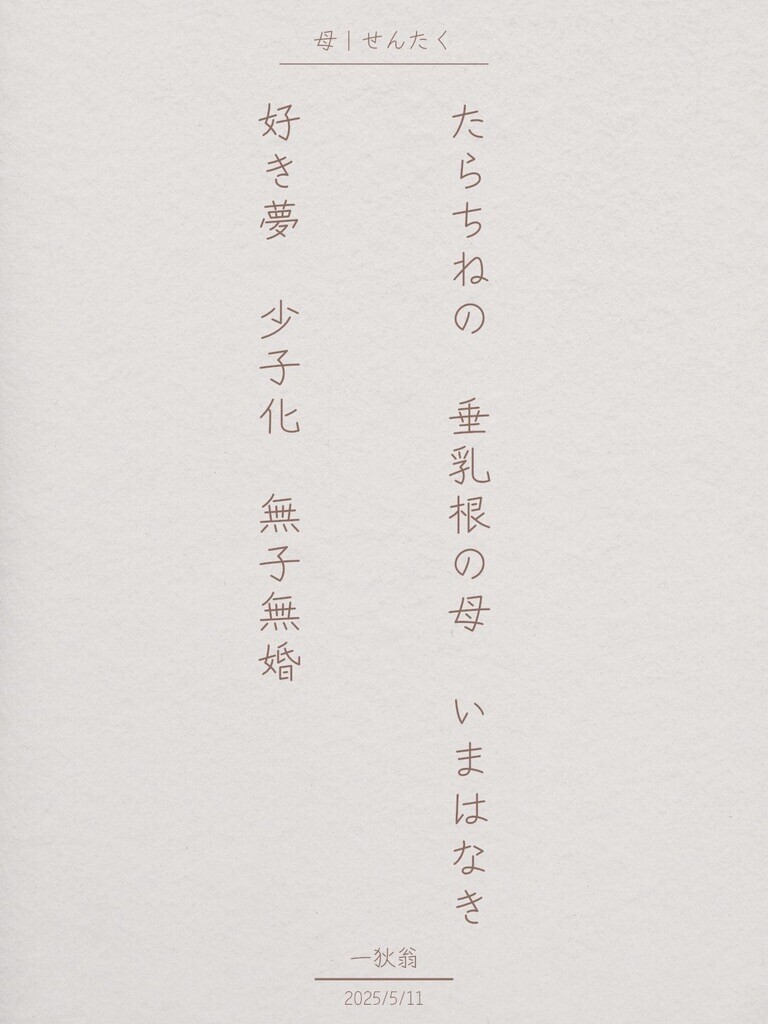 母|せんたく
たらちねの　垂乳根の母　いまはなき
好き夢　少子化　無子無婚
一狄翁
2025/5/11